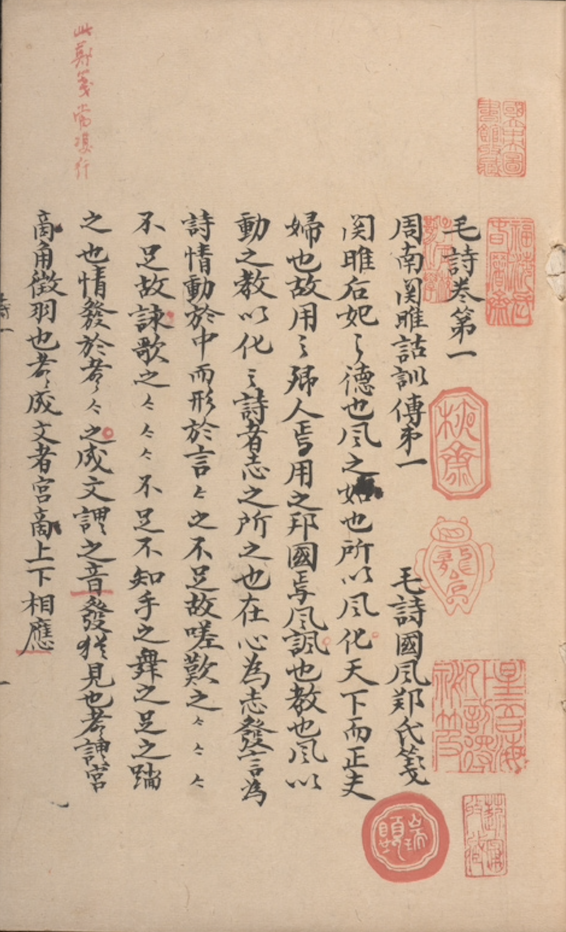 毛詩卷第一
周南関雎詁訓傳苐一　毛詩國風鄭氏箋
関雎后妃之德也風之始也所以風化天下而正夫
婦也故用之鄉人焉用之邦國焉風諷也教也風以
動之教以化之詩者志之所之也在心為志發言為
詩情動於中而形於言々之不足故嗟歎之々々々
不足故詠歌之々々々不足不知手之舞之足之蹈
之也情發於声々之成文謂之音發猶見也声謂宮
商角徵羽也声成文者宮商上下相應
此鄭箋當行